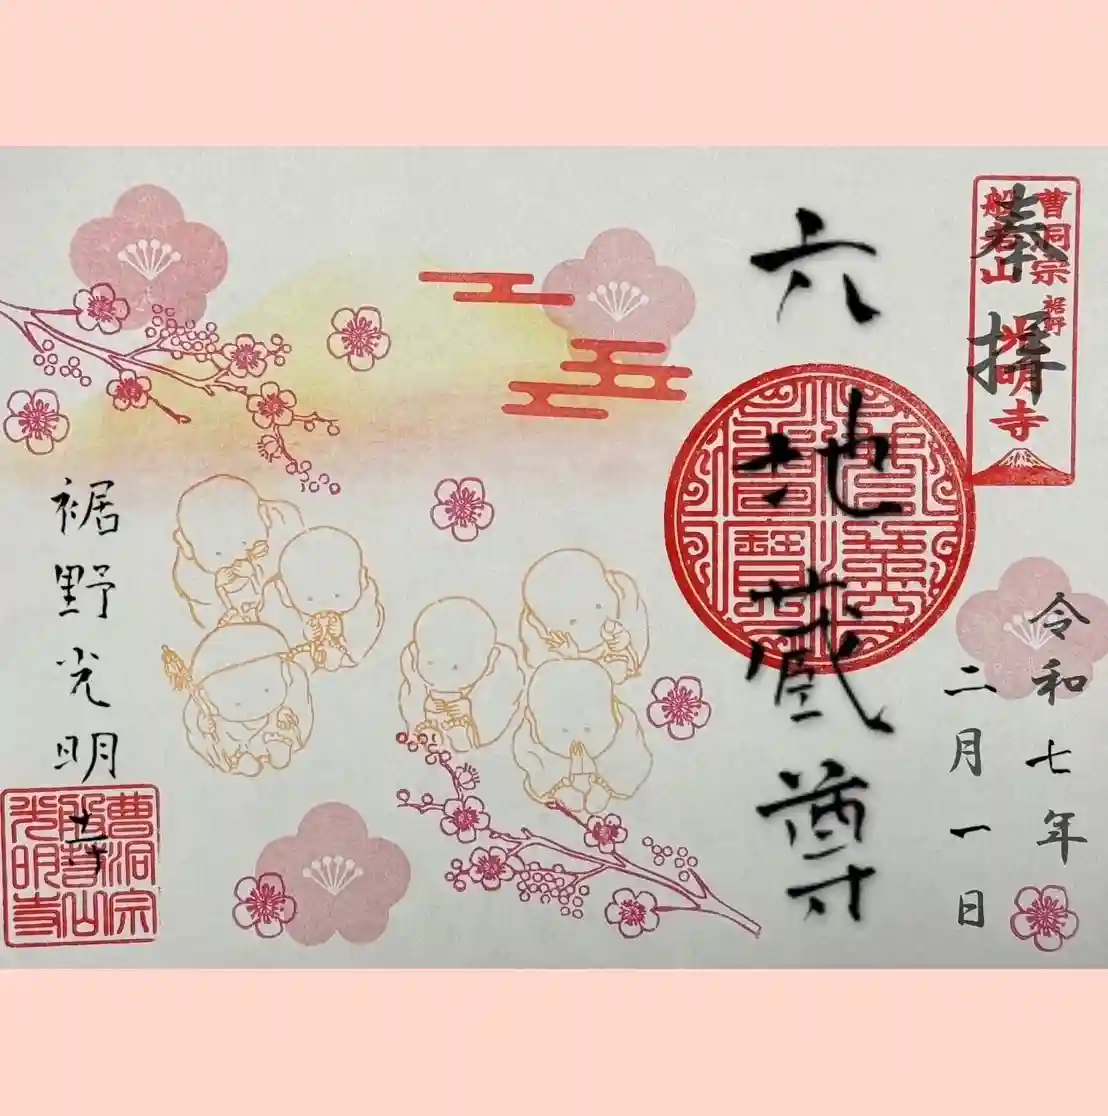 奉拝
曹洞宗
般若山
裾野
光明寺
令和七年
二月一日
六地蔵尊
裾野光明寺
曹洞宗
般若山
光明寺